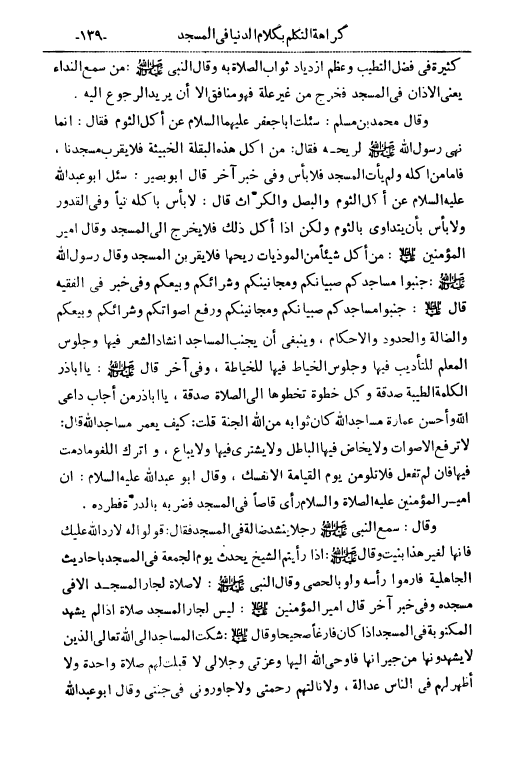 كراهة التكلم بكلام الدنيا فى المسجد -١٣٩-
كثيرة فى فضل التطيب وعظم ازدياد ثواب الصلاة به وقال النبى ﷺ : من سمع النداء
يعنى الاذان فى المسجد فخرج من غير علة فهو منافق الا أن يريد الرجوع اليه .
وقال محمد بن مسلم : سئلت ابا جعفر عليهما السلام عن أكل الثوم فقال : انما
نهى رسول الله ﷺ لريحه فقال : من اكل هذه البقلة الخبيثة فلا يقرب مسجدنا ،
فاما من اكله ولم يأت المسجد فلا بأس وفى خبر آخر قال ابو بصير : سئل ابو عبدالله
عليه السلام عن أكل الثوم والبصل والكرّاث قال : لا بأس باكله نياً وفى القدور
ولا بأس بأن يتداوى بالثوم ولكن اذا أكل ذلك فلا يخرج الى المسجد وقال امير
المؤمنين عليه السلام : من أكل شيئاً من الموذيات ريحها فلا يقربن المسجد وقال رسول الله
ﷺ : جنبوا مساجدكم صبيانكم ومجانينكم وشرائكم وبيعكم وفى خبر فى الفقيه
قال عليه السلام : جنبوا مساجدكم صبيانكم ومجانينكم ورفع اصواتكم وشرائكم وبيعكم
والضالة والحدود والاحكام ، وينبغى أن يجنب المساجد انشاد الشعر فيها وجلوس
المعلم للتأديب فيها وجلوس الخياط فيها للخياطة ، وفى آخر قال ﷺ : يا اباذر
الكلمة الطيبة صدقة وكل خطوة تخطوها الى الصلاة صدقة ، يا اباذر من أجاب داعى
الله وأحسن عمارة مساجد الله كان ثوابه من الله الجنة قلت : كيف يعمر مساجد الله قال :
لا ترفع الاصوات ولا يخاض فيها الباطل ولا يشترى فيها ولا يباع ، و اترك اللغو مادمت
فيها فان لم تفعل فلا تلومن يوم القيامة الا نفسك ، وقال ابو عبدالله عليه السلام : ان
امير المؤمنين عليه الصلاة والسلام رأى قاصاً فى المسجد فضربه بالدرّة فطرده .
وقال : سمع النبى ﷺ رجلا ينشد ضالة فى المسجد فقال : قولوا له لا رد الله عليك
فانها لغير هذا بنيت وقال ﷺ : اذا رأيتم الشيخ يحدث يوم الجمعة فى المسجد باحاديث
الجاهلية فارموا رأسه ولو بالحصى وقال النبى ﷺ : لا صلاة لجار المسجد الا فى
مسجده وفى خبر آخر قال امير المؤمنين عليه السلام : ليس لجار المسجد صلاة اذا لم يشهد
المكتوبة فى المسجد اذا كان فارغاً صحيحا وقال عليه السلام : شكت المساجد الى الله تعالى الذين
لا يشهدونها من جيرانها فاوحى الله اليها وعزتى وجلالى لا قبلت لهم صلاة واحدة ولا
أظهر لهم فى الناس عدالة ، ولا نالتهم رحمتى ولا جاورونى فى جنتى وقال ابو عبدالله